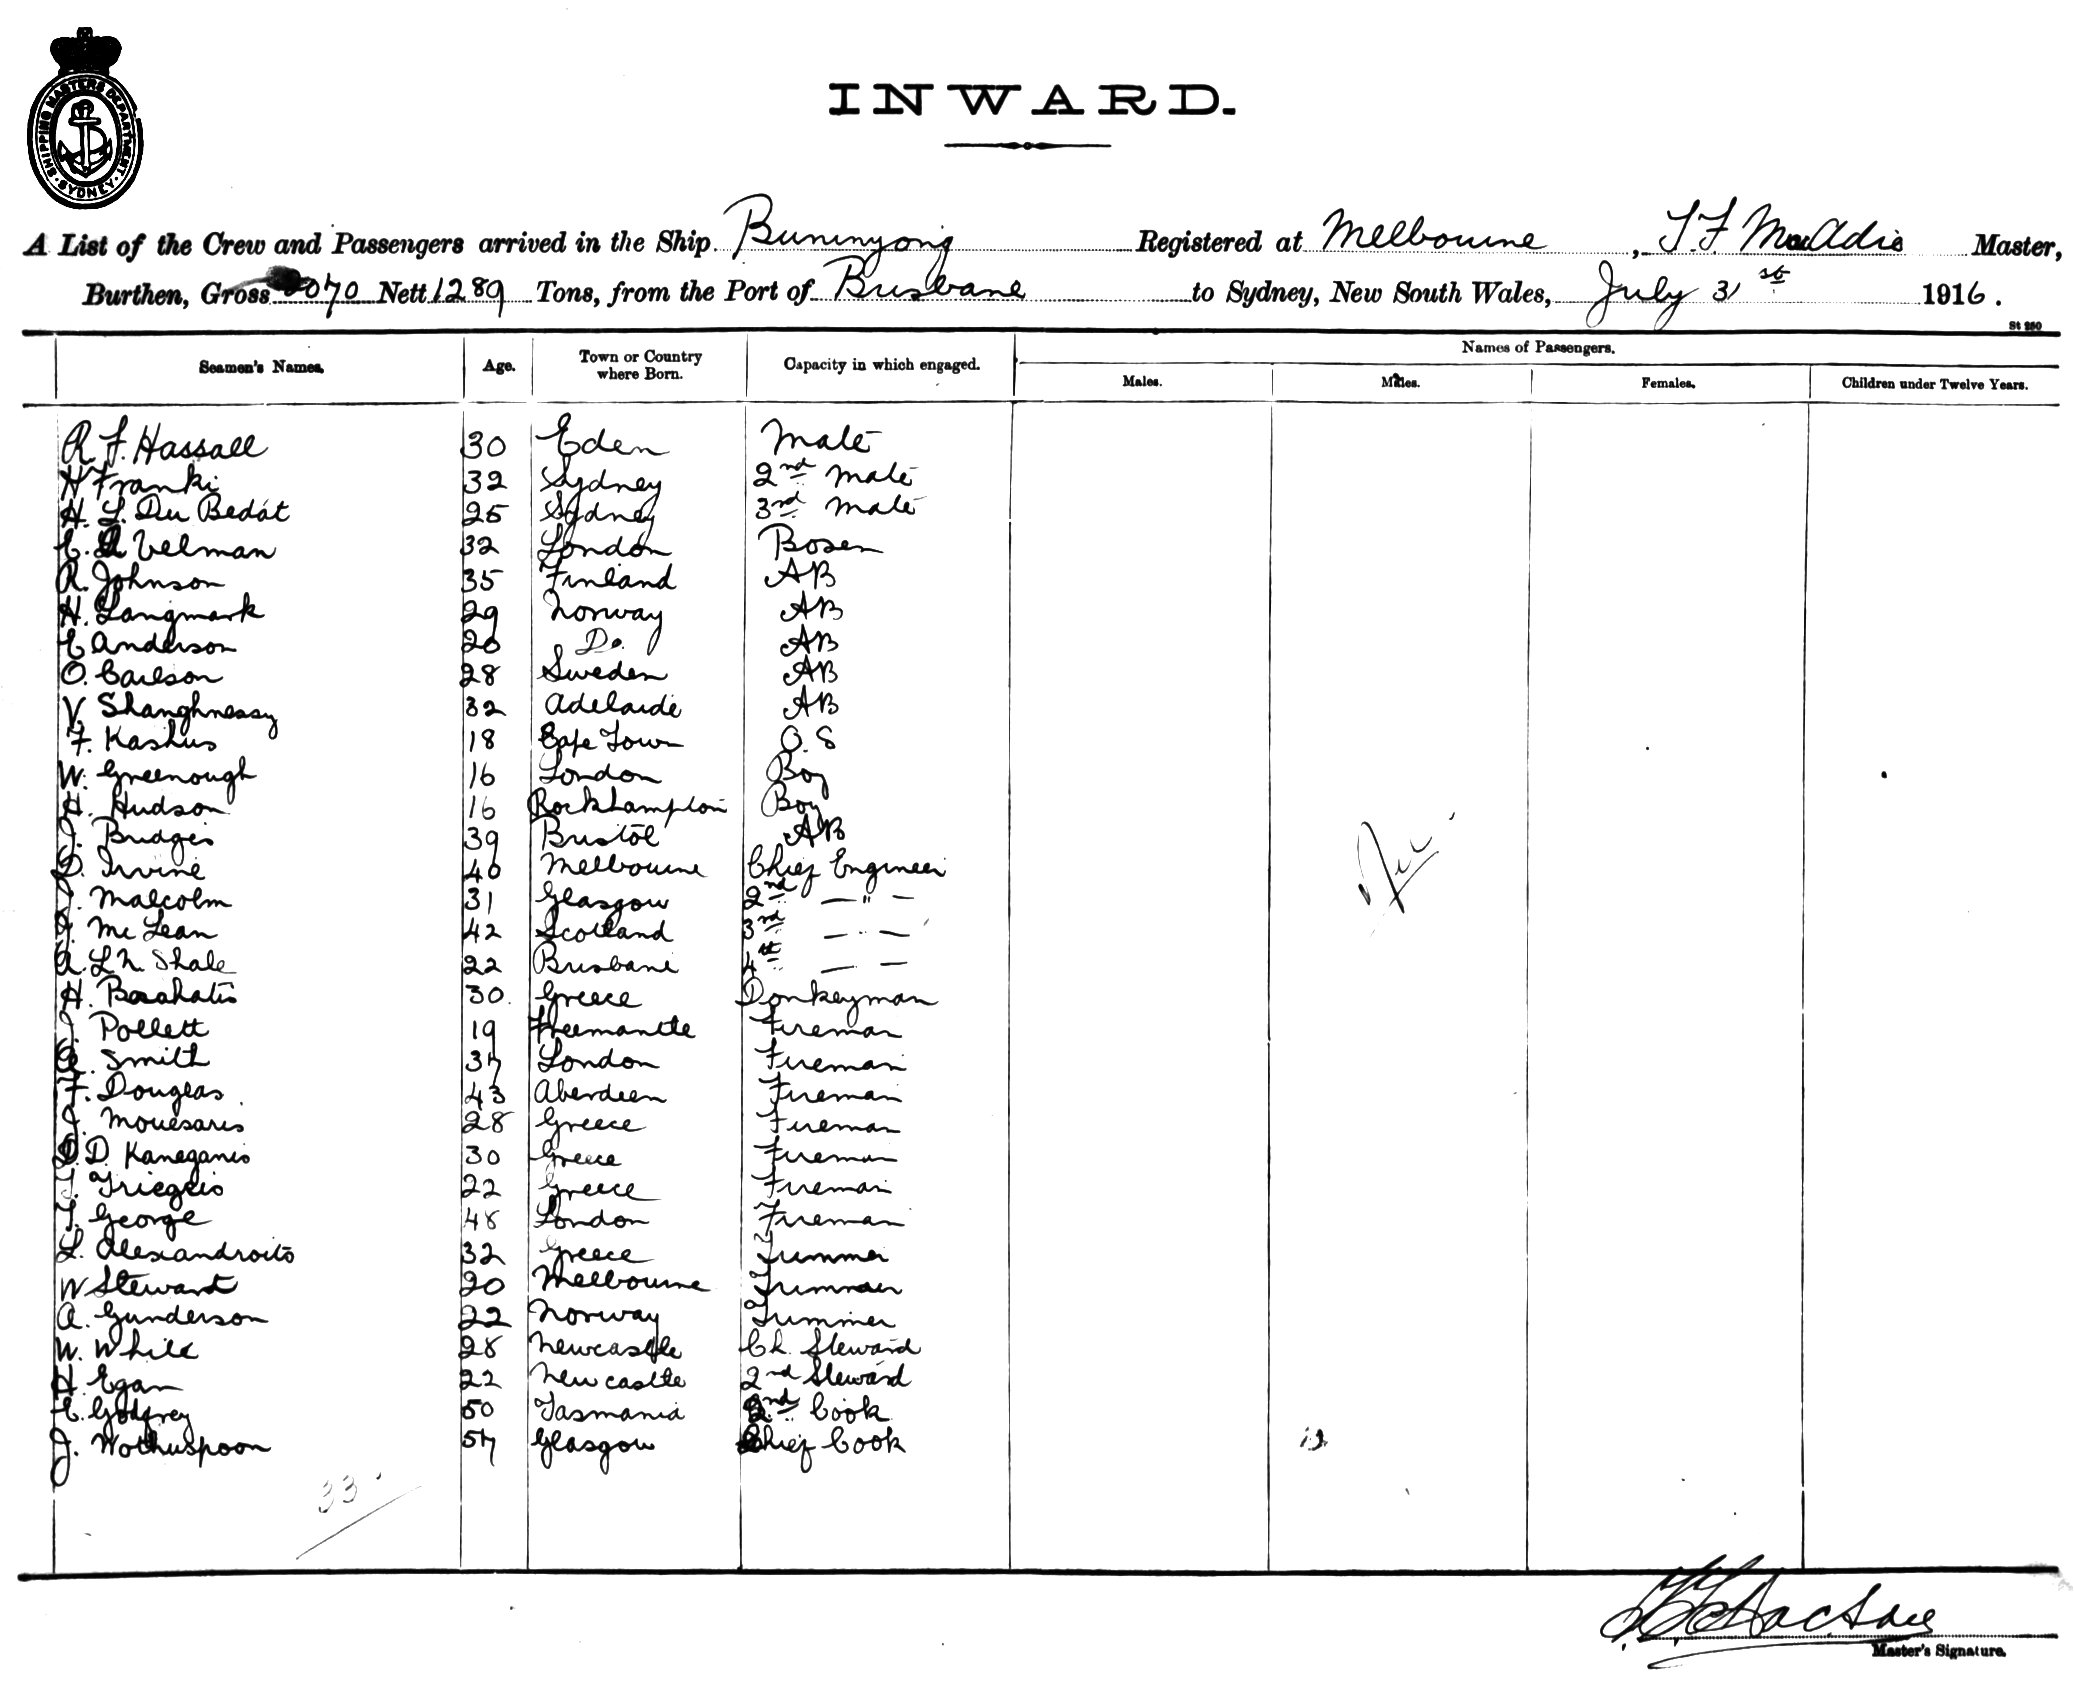 SHIPPING MASTERS DEPARTMENT
SYDNEY
INWARD.
A List of the Crew and Passengers arrived in the Ship Buninyong Registered at Melbourne, T. F MacAdie Master,
Burthen, Gross 2070 Nett 1289 Tons, from the Port of Brisbane to Sydney, New South Wales, July 31st 1916.
St 250
Seamen's Names. Age. Town or Country where Born. Capacity in which engaged. Names of Passengers.
Males. Males. Females. Children under Twelve Years.
R. F. Hassall 30 Eden Mate
H Franki 32 Sydney 2nd Mate
H. L. Du Bedat 25 Sydney 3rd Mate
E. Velman 32 London Bosen
R. Johnson 35 Finland AB
H. Langmark 29 Norway AB
E Anderson 20 Do. AB
O. Carlson 28 Sweden AB
V. Shanghnessy 32 Adelaide AB
F. Kashus 18 Cape Town O.S
W. Greenough 16 London Boy
H. Hudson 16 Rockhampton Boy
J. Bridges 39 Bristol AB
D. Irvine 40 Melbourne Chief Engineer
J. Malcolm 31 Glasgow 2nd — " —
J. McLean 42 Scotland 3rd — " —
A. L. N. Shale 22 Brisbane 4th — —
H. 30. Greece Donkeyman
J. Pollett 19 Freemantle Fireman
A. Smith 37 London Fireman
F. Douglas. 43 Aberdeen Fireman
J. Mouesaris 28 Greece Fireman
D. Kaneganis 30 Greece Fireman
T. Trieglis 22 Greece Fireman
T. George 48 London Fireman
L. Alexandroito 32 Greece Trimmer
W Stewart 20 Melbourne Trimmer
A. Gunderson 22 Norway Trimmer
W. White 28 Newcastle Ch. Steward
H. Egan 22 Newcastle 2nd Steward
E. Godfrey 50 Tasmania 2nd Cook
J. Wotherspoon 57 Glasgow Chief Cook
33
Master's Signature.